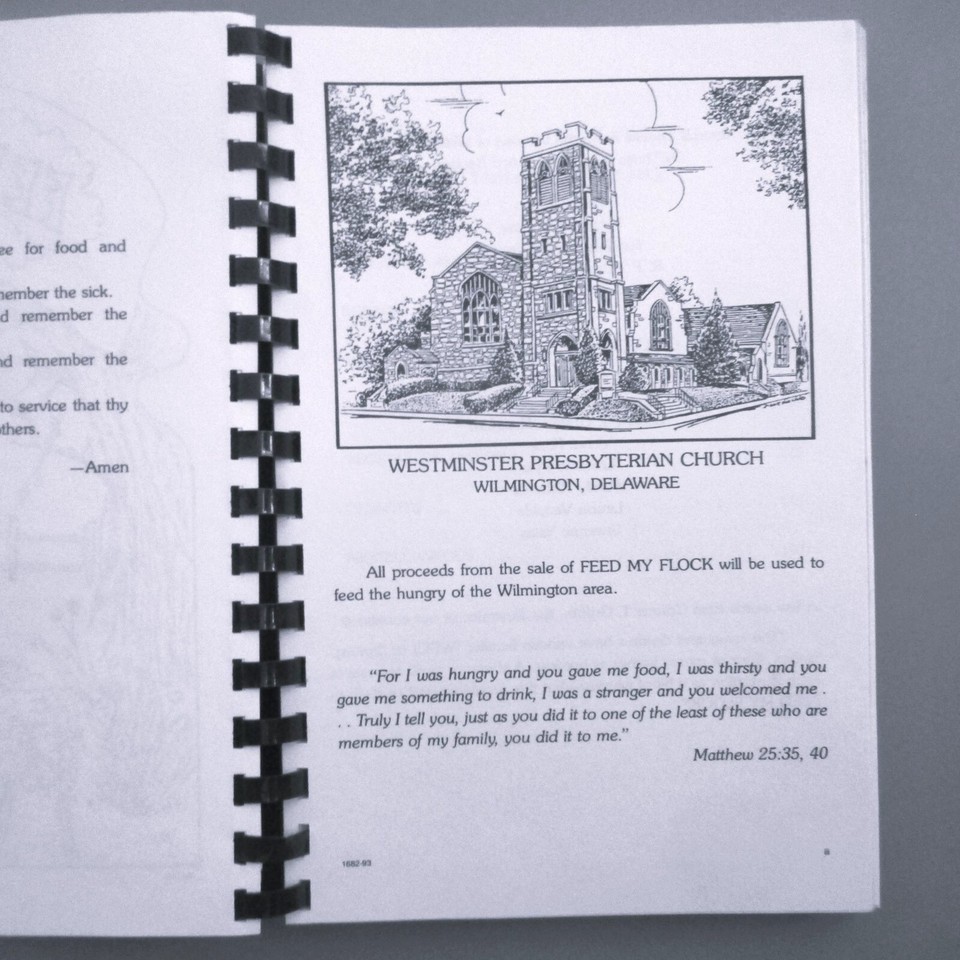 ee for food and
nember the sick.
d remember the
nd remember the
to service that thy
thers.
—Amen
WESTMINSTER PRESBYTERIAN CHURCH
WILMINGTON, DELAWARE
All proceeds from the sale of FEED MY FLOCK will be used to
feed the hungry of the Wilmington area.
“For I was hungry and you gave me food, I was thirsty and you
gave me something to drink, I was a stranger and you welcomed me .
. . Truly I tell you, just as you did it to one of the least of these who are
members of my family, you did it to me.”
Matthew 25:35, 40
1682-93